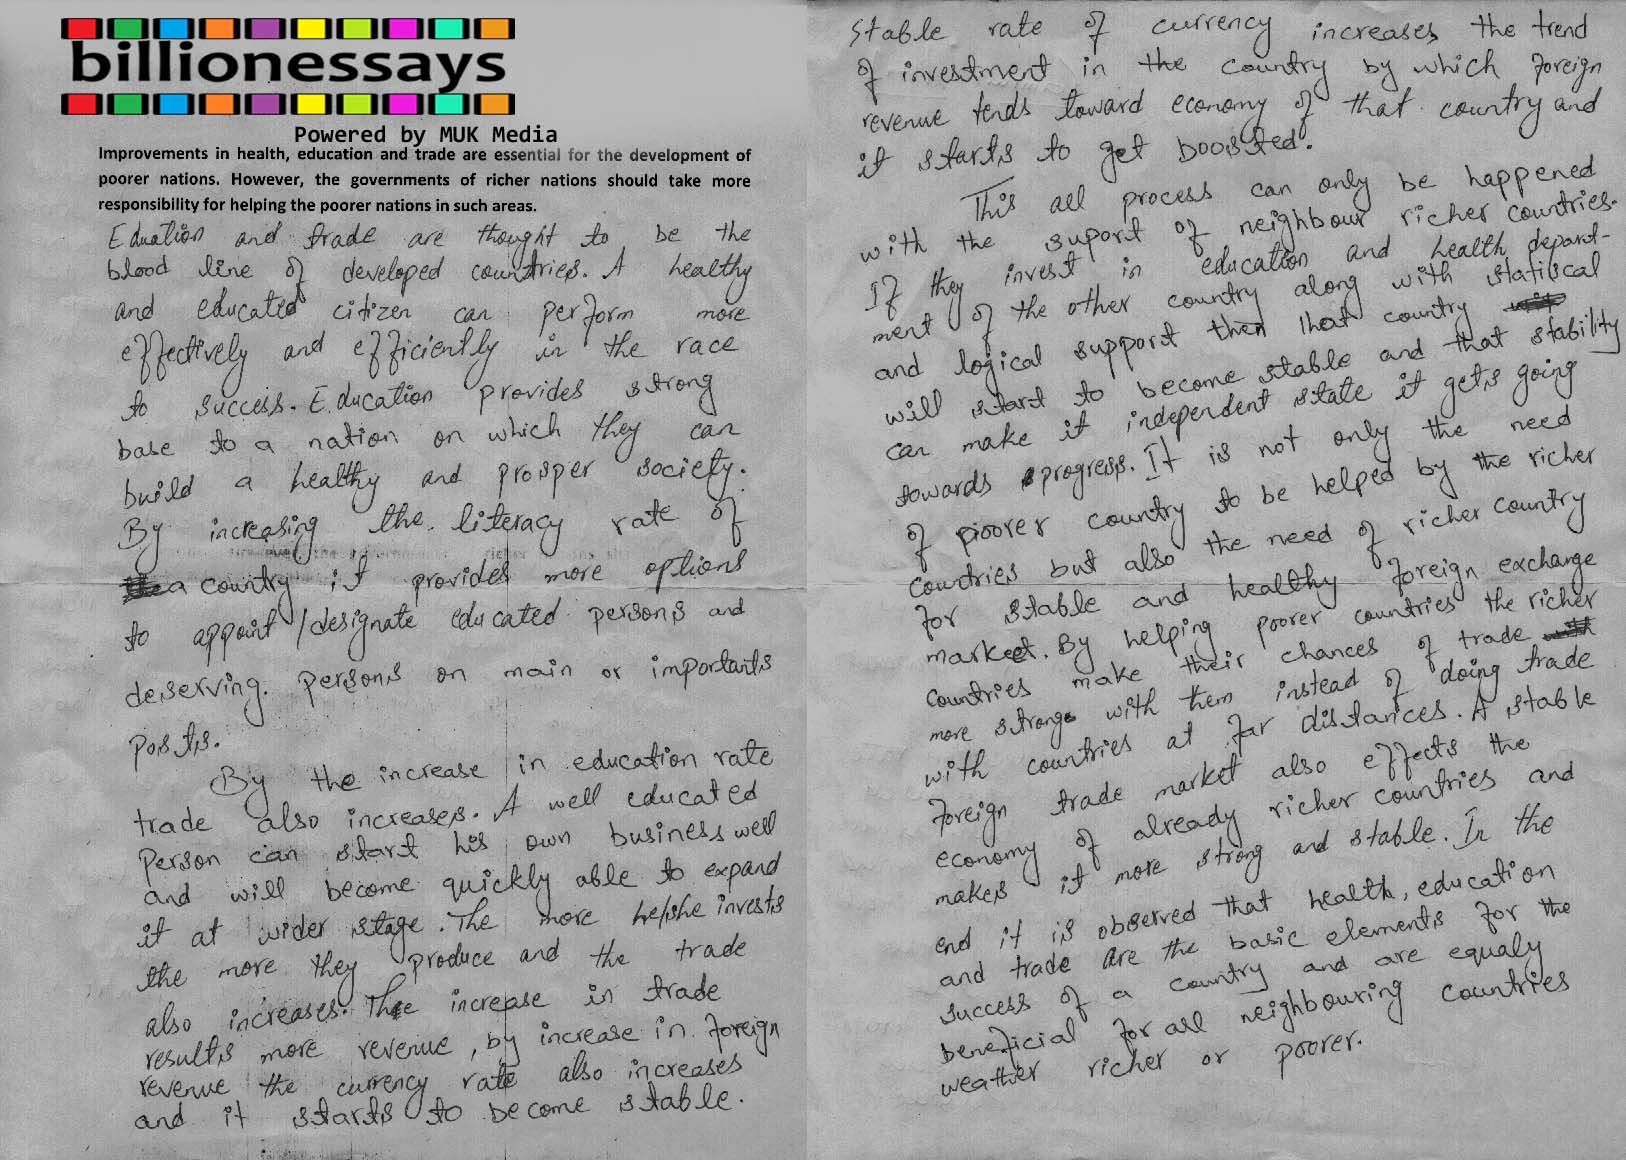 billionessays
Powered by MUK Media
Improvements in health, education and trade are essential for the development of
poorer nations. However, the governments of richer nations should take more
responsibility for helping the poorer nations in such areas.
Eduation and trade are thought to be the
blood line of developed countries. A healthy
and educated citizen can perform more
effectively and efficiently in the race
to success. Education provides strong
base to a nation on which they can
build a healthy and prosper society.
By increasing the literacy rate of
a country it provides more options
to appoint/designate educated persons and
deserving persons on main or importants
posts.
By the increase in education rate
trade also increases. A well educated
person can start his own business well
and will become quickly able to expand
it at wider stage. The more he/she invests
the more they produce and the trade
also increases. The increase in trade
results more revenue, by increase in foreign
revenue the currency rate also increases
and it starts to become stable.
Stable rate of currency increases the trend
of investment in the country by which foreign
revenue tends toward economy of that country and
it starts to get boosted.
This all process can only be happened
with the suport of neighbour richer countries.
If they invest in education and health depart-
ment of the other country along with statiscal
and logical support then that country
will start to become stable and that stability
can make it independent state it gets going
towards progress. It is not only the need
of poorer country to be helped by the richer
countries but also the need of richer country
for stable and healthy foreign exchange
market. By helping poorer countries the richer
countries make their chances of trade
more strong with them instead of doing trade
with countries at far distances. A stable
foreign trade market also effects the
economy of already richer countries and
makes it more strong and stable. In the
end it is observed that health, education
and trade are the basic elements for the
success of a country and are equaly
beneficial for all neighbouring countries
weather richer or poorer.